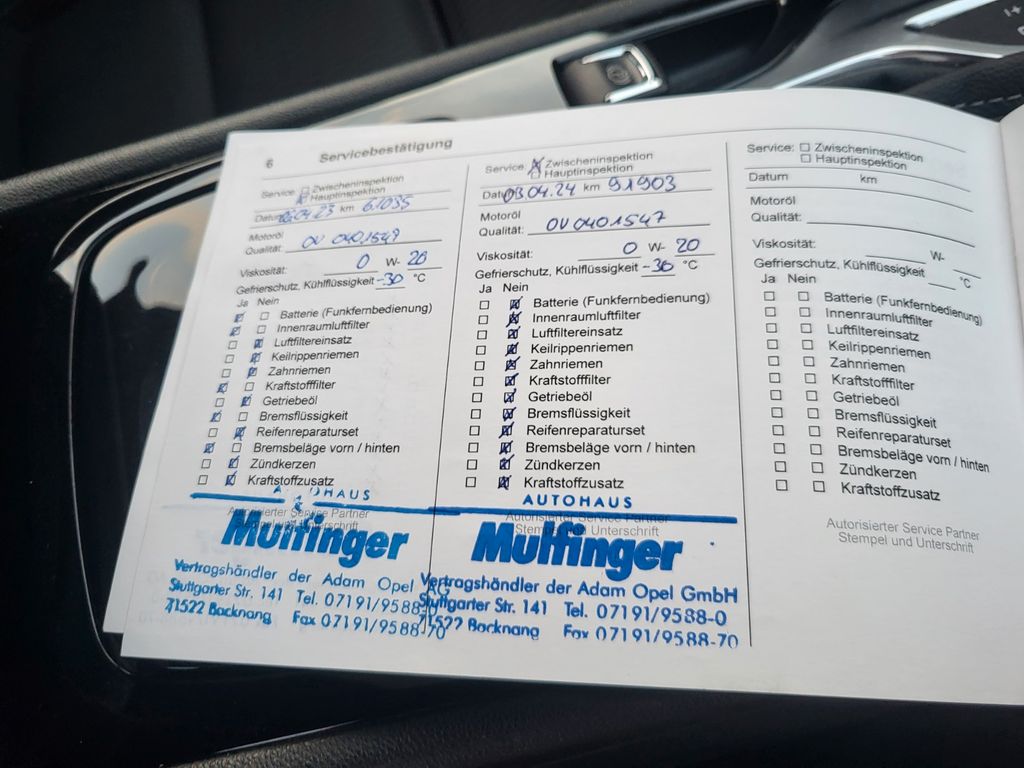 6 Servicebestätigung
Service: Zwischeninspektion
Hauptinspektion
04.23 km 61035
Motoröl
Qualität: OV 0401547
Viskosität: 0 W- 20
Gefrierschutz, Kühlflüssigkeit -30 °C
Ja Nein
Batterie (Funkfernbedienung)
Innenraumluftfilter
Luftfiltereinsatz
Keilrippenriemen
Zahnriemen
Kraftstofffilter
Getriebeöl
Bremsflüssigkeit
Reifenreparaturset
Bremsbeläge vorn / hinten
Zündkerzen
Kraftstoffzusatz
Autorisierter Service Partner
Stempel und Unterschrift
AUTOHAUS
Mulfinger
Vertragshändler der Adam Opel AG
Stuttgarter Str. 141 Tel. 07191/9588-0
71522 Backnang Fax 07191/9588-70
Service: Zwischeninspektion
Hauptinspektion
Datum 03.04.24 km 91903
Motoröl
Qualität: OV 0401547
0 W- 20
Viskosität:
Gefrierschutz, Kühlflüssigkeit -36 °C
Ja Nein
Batterie (Funkfernbedienung)
Innenraumluftfilter
Luftfiltereinsatz
Keilrippenriemen
Zahnriemen
Kraftstofffilter
Getriebeöl
Bremsflüssigkeit
Reifenreparaturset
Bremsbeläge vorn / hinten
Zündkerzen
Kraftstoffzusatz
AUTOHAUS
Autorisierter Service Partner
Stempel und Unterschrift
Mulfinger
Vertragshändler der Adam Opel GmbH
Stuttgarter Str. 141 Tel. 07191/9588-0
71522 Backnang Fax 07191/9588-70
Service: Zwischeninspektion
Hauptinspektion
Datum km
Motoröl
Qualität:
Viskosität: W-
Gefrierschutz, Kühlflüssigkeit °C
Ja Nein
Batterie (Funkfernbedienung)
Innenraumluftfilter
Luftfiltereinsatz
Keilrippenriemen
Zahnriemen
Kraftstofffilter
Getriebeöl
Bremsflüssigkeit
Reifenreparaturset
Bremsbeläge vorn / hinten
Zündkerzen
Kraftstoffzusatz
Autorisierter Service Partner
Stempel und Unterschrift